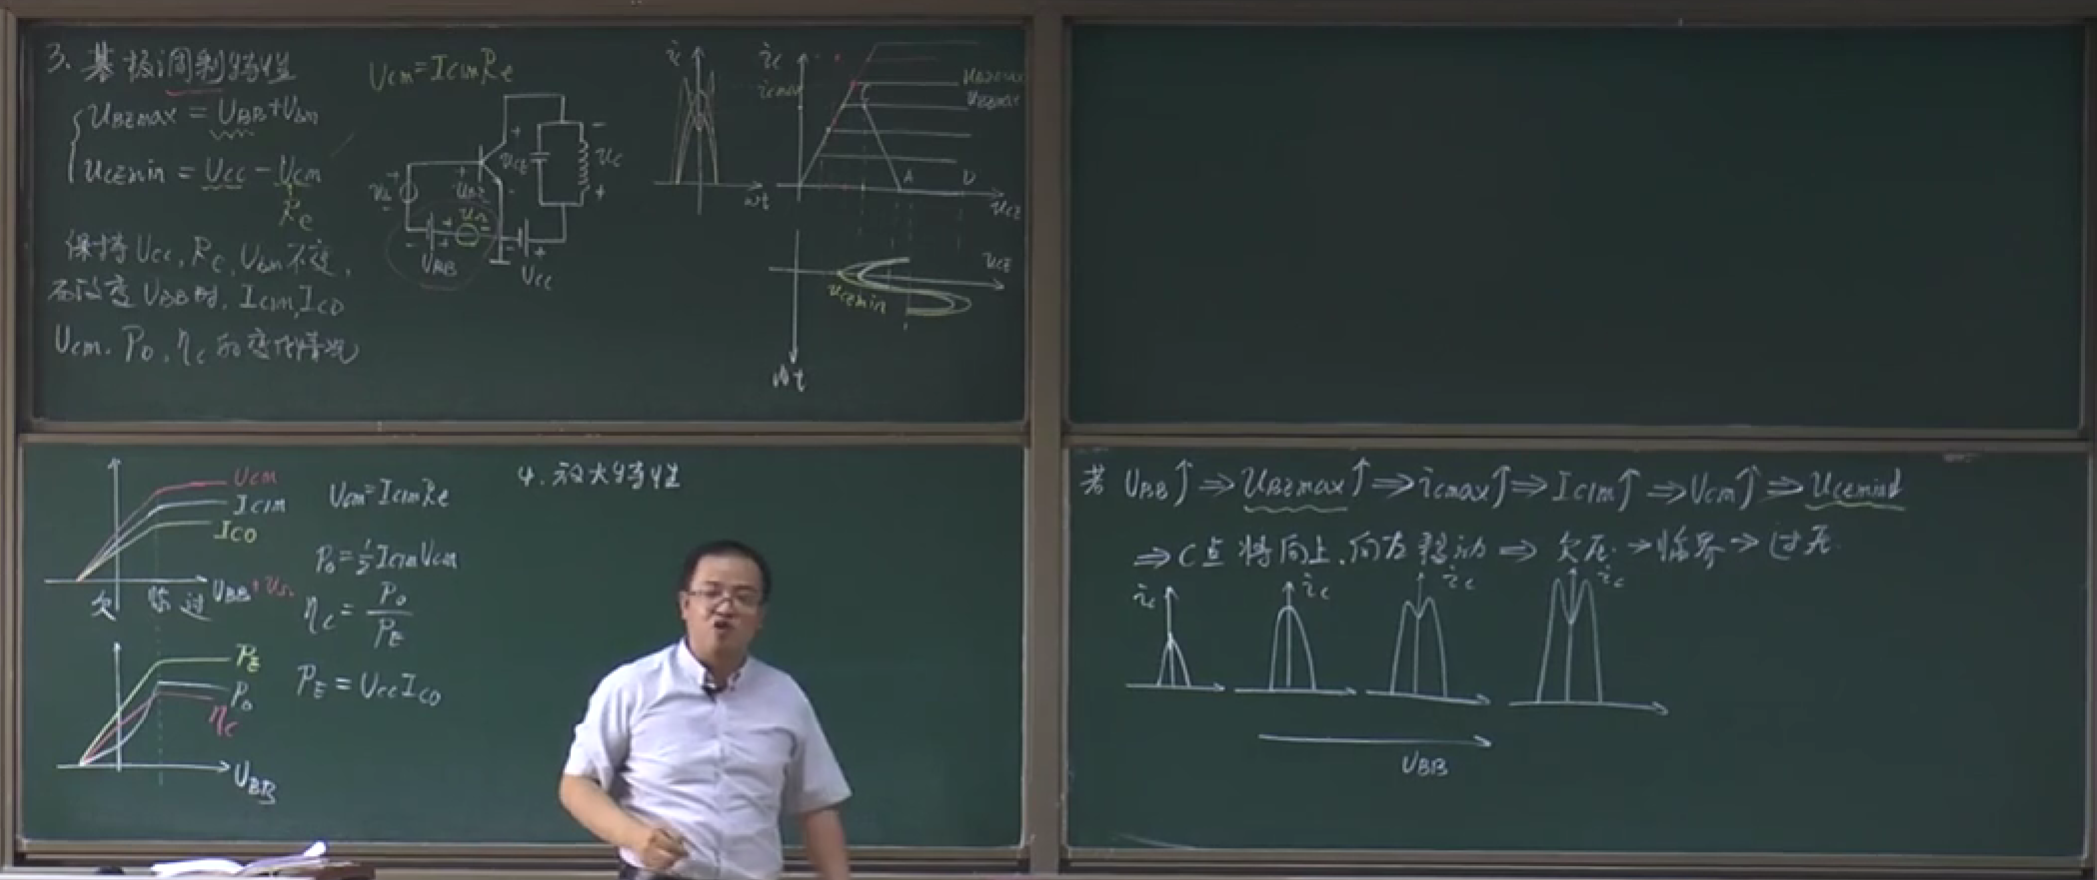 3、基极调制特性
Ucm=Ic1mRe
uBEmax = UBB+Ubm
uCEmin = Ucc - Ucm
Re
保持Ucc,Rc,Ubm不变,
而改变UBB时,Ic1m,Ic0
Ucm,Po,ηc的变化情况
ub
uBE
uΩ
UBB
uCE
uc
Ucc
ic
ωt
ic
icmax
uBEmax
uBEmax
C
A
D
uCE
uCE
uCEmin
ωt
Ucm
Ic1m
Ic0
UBB+uΩ
欠 临 过
Ucm=Ic1mRe
Po=½Ic1mUcm
ηc = Po/PE
PE = UccIc0
PE
Po
ηc
UBB
4、放大特性
若 UBB↑⇒uBEmax↑⇒icmax↑⇒Ic1m↑⇒Ucm↑⇒uCEmin↓
⇒C点将向上、向左移动⇒欠压→临界→过压
ic
ic
ic
ic
UBB